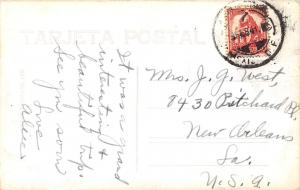 TARJETA POSTAL
It was a grand
interesting &
beautiful trip.
See you soon
Love
Alice
Mrs. J. G. West,
7430 Pritchard Pl.
New Orleans
La.
U.S.A.